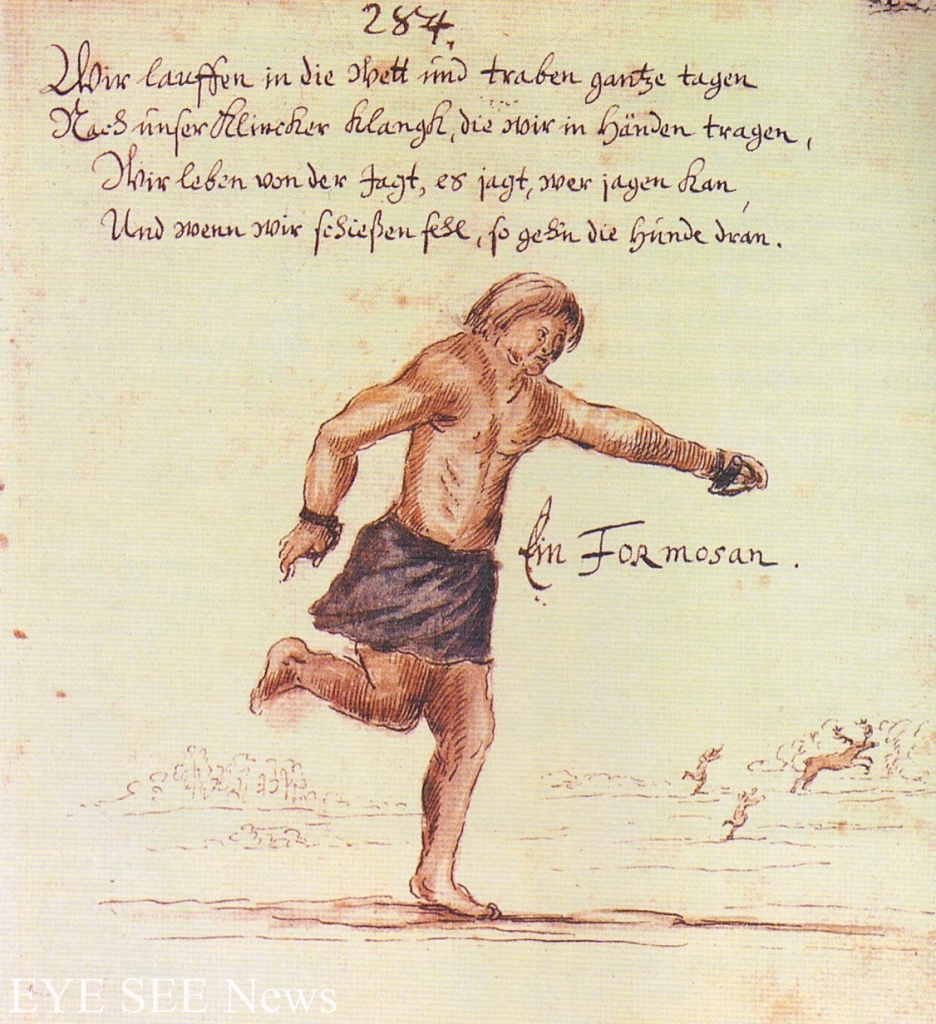 284.
Wir lauffen in die Wett und traben gantze tagen
Nach unser Klincker Klangk, die wir in Händen tragen,
Wir leben von der Jagt, es jagt, wer jagen kan,
Und wenn wir schießen fehl, so gehn die Hunde dran.
Ein Formosan.
EYE SEE News